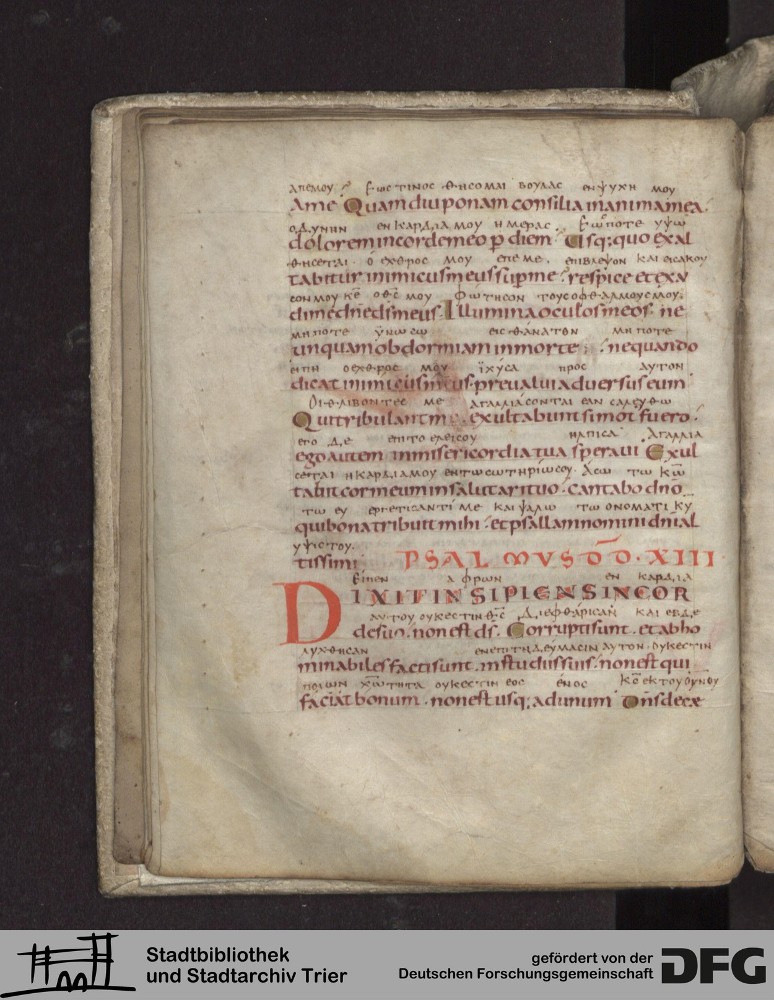 ΑΠΕΜΟΥ· ΕΩC ΤΙΝΟC ΘΗCΟΜΑΙ ΒΟΥΛΑC ΕΝ ΨΥΧΗ ΜΟΥ
Ame Quamdiu ponam consilia in anima mea.
ΟΔΥΝΗΝ ΕΝ ΚΑΡΔΙΑ ΜΟΥ ΗΜΕΡΑC. ΕΩC ΠΟΤΕ ΥΨΩ
dolorem in corde meo p diem. Usq; quo exal
ΘΗCΕΤΑΙ· Ο ΕΧΘΡΟC ΜΟΥ ΕΠ ΕΜΕ. ΕΠΙΒΛΕΨΟΝ ΚΑΙ ΕΙCΑΚΟΥ
tabitur inimicus meus sup me. respice et exa
CΟΝ ΜΟΥ ΚΕ Ο ΘC ΜΟΥ ΦΩΤΗCΟΝ ΤΟΥC ΟΦΘΑΛΜΟΥC ΜΟΥ.
di me dne ds meus. Illumina oculos meos. ne
ΜΗΠΟΤΕ ΥΝΩCΩ ΕΙC ΘΑΝΑΤΟΝ ΜΗΠΟΤΕ
unquam obdormiam in morte. nequando
ΕΙΠΗ Ο ΕΧΘΡΟC ΜΟΥ ΙΧΥCΑ ΠΡΟC ΑΥΤΟΝ
dicat inimicus meus. preualui aduersus eum
ΟΙ ΘΛΙΒΟΝΤΕC ΜΕ ΑΓΑΛΛΙΑCΟΝΤΑΙ ΕΑΝ CΑΛΕΥΘΩ
Qui tribulant me. exultabunt si mot fuero.
ΕΓΟ ΔΕ ΕΠΙ ΤΟ ΕΛΕΙ CΟΥ ΗΛΠΙCΑ ΑΓΑΛΛΙΑ
ego autem in misericordia tua speraui Exul
CΕΤΑΙ Η ΚΑΡΔΙΑ ΜΟΥ ΕΝ ΤΩ CΩΤΗΡΙΩ CΟΥ. ΑCΩ ΤΩ ΚΩ
tabit cor meum in salutari tuo. cantabo dno
ΤΩ ΕΥΕΡΓΕΤΙCΑΝΤΙ ΜΕ ΚΑΙ ΨΑΛΩ ΤΩ ΟΝΟΜΑΤΙ ΚΥ
qui bona tribuit mihi. et psallam nomini dni al
ΥΨΙCΤΟΥ.
tissimi PSALMUS DD. XIII
ΕΙΠΕΝ ΑΦΡΩΝ ΕΝ ΚΑΡΔΙΑ
DIXIT INSIPIENS IN COR
ΑΥΤΟΥ ΟΥΚ ΕCΤΙΝ ΘC ΔΙΕΦΘΑΡΙCΑΝ ΚΑΙ ΕΒΔΕ
de suo. non est ds. Corrupti sunt. et abho
ΛΥΧΘΗCΑΝ ΕΝ ΕΠΙΤΗΔΕΥΜΑCΙΝ ΑΥΤΟΝ· ΟΥΚ ΕCΤΙΝ
minabiles facti sunt. in studiis suis. non est qui
ΠΟΙΩΝ ΧΩΤΗΤΑ ΟΥΚ ΕCΤΙΝ ΕΟC ΕΝΟC ΚC ΕΚ ΤΟΥ ΟΥΝΟΥ
faciat bonum. non est usq; ad unum Dns de cae
Stadtbibliothek
und Stadtarchiv Trier
gefördert von der
Deutschen Forschungsgemeinschaft
DFG